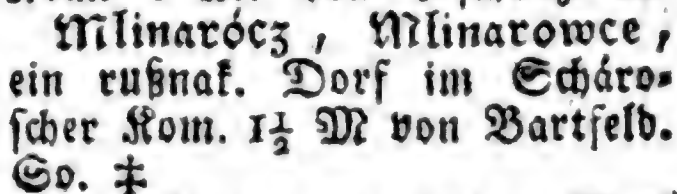 Mlinarócz, Mlinarowce,
ein rußnak. Dorf im Scháro-
scher Kom. 1½ M von Bartfeld.
So. ‡